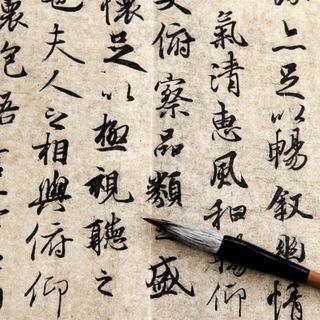 亦足以暢敘幽情
氣清惠風和暢仰
大俯察品類之盛
懷足以極視聽之
也夫人之相與俯仰
懷抱悟言